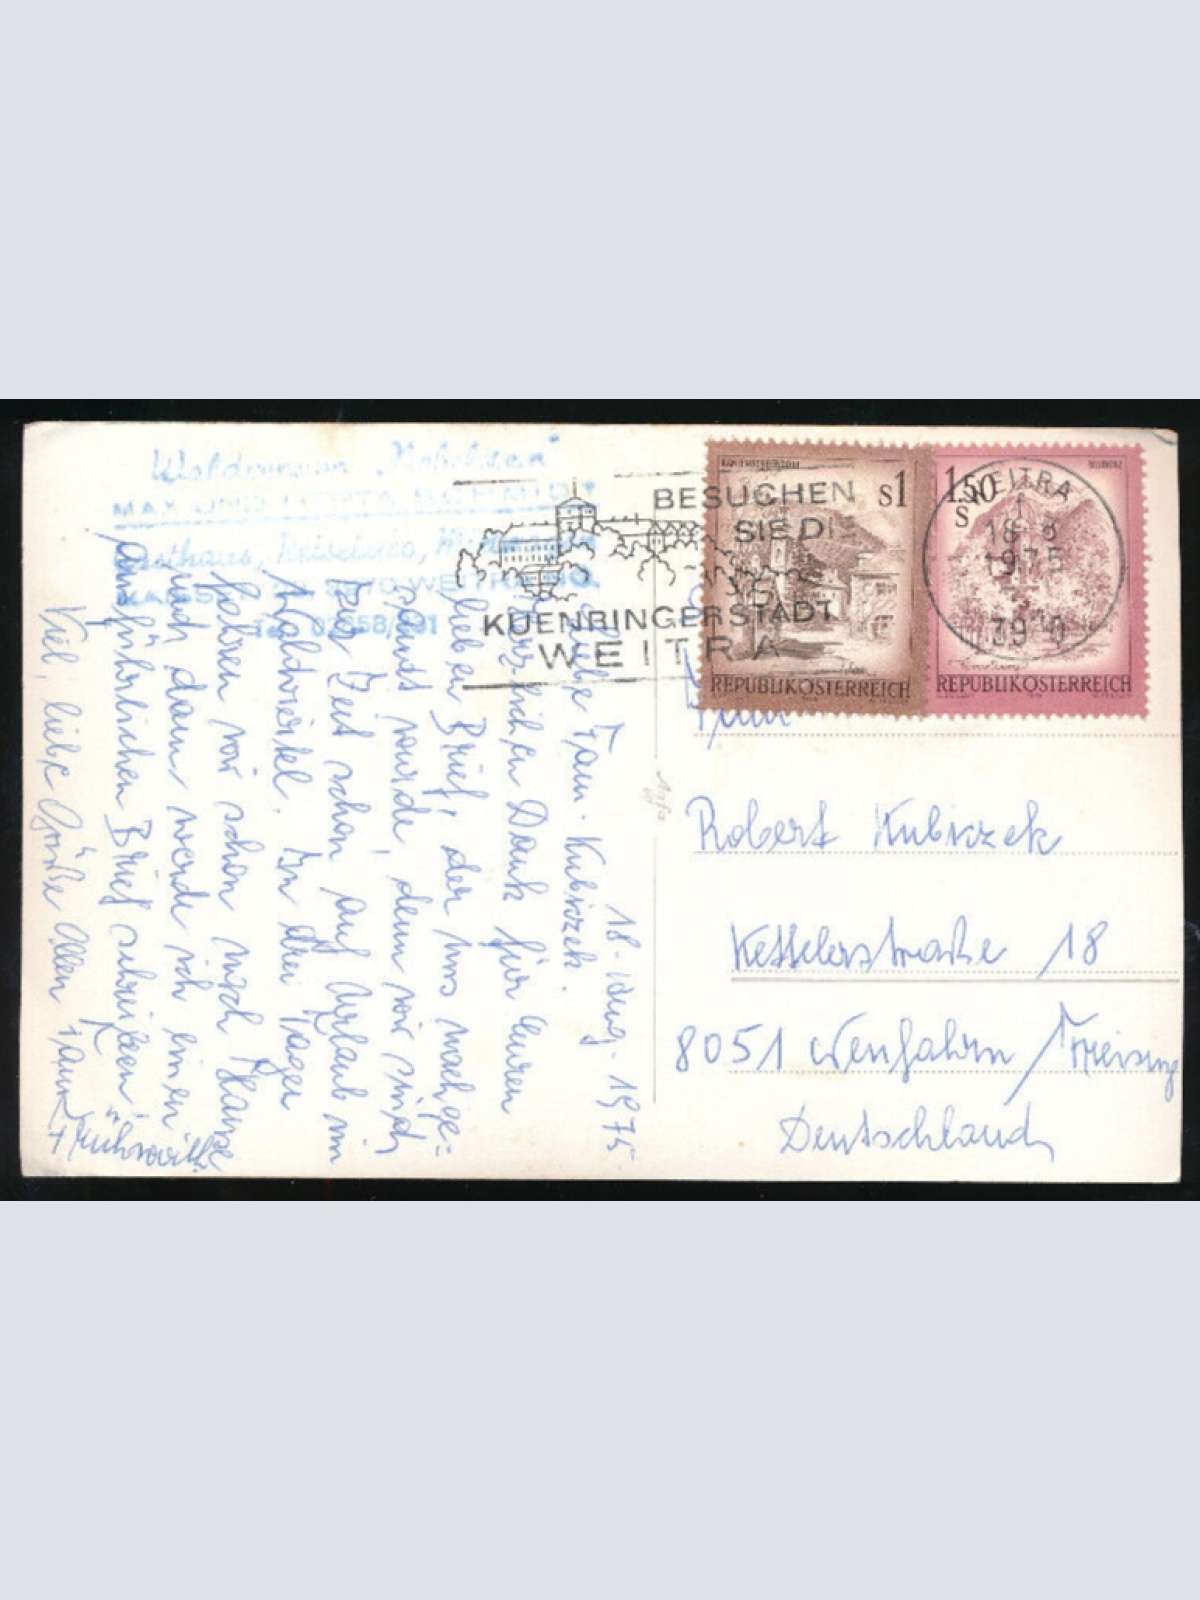 Waldpension "Nebelstein"
MAX UND HERTA
Gasthaus,
WEITRA NÖ.
Tel. 02858/291
BESUCHEN
SIE DIE
KUENRINGERSTADT
WEITRA
s1
REPUBLIK ÖSTERREICH
1.50
s
REPUBLIK ÖSTERREICH
WEITRA
18 8
1975
3970
Robert Kubiczek
Kettelerstraße 18
8051 Neufahrn / Freising
Deutschland
18. Aug. 1975
Liebe Fam. Kubiczek.
Herzlichen Dank für Euren
lieben Brief, der uns nachge=
sandt wurde, denn wir sind
zur Zeit schon auf Urlaub im
Waldviertel. In drei Tagen
fahren wir schon nach Hause
und dann werde ich einen
ausführlichen Brief schreiben.
Viel liebe Grüße Allen Fam.